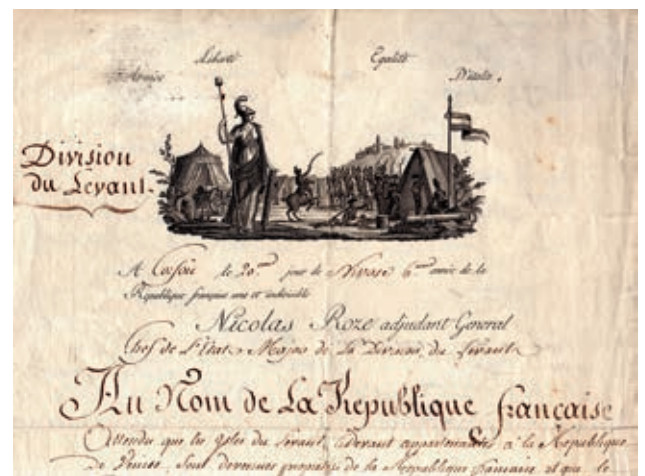 Liberté Egalité
Armée D'italie.
Division
du Levant.
A Corfou le 20me jour de Nivose 6me année de la
République française une et indivisible
Nicolas Roze adjudant General
Chef de L'Etat Major de La Division du Levant
Au Nom de La Republique française
Attendu que les isles du Levant, cidevant appartenantes à la Republique
de Venise, sont devenues propriété de la Republique française et que le